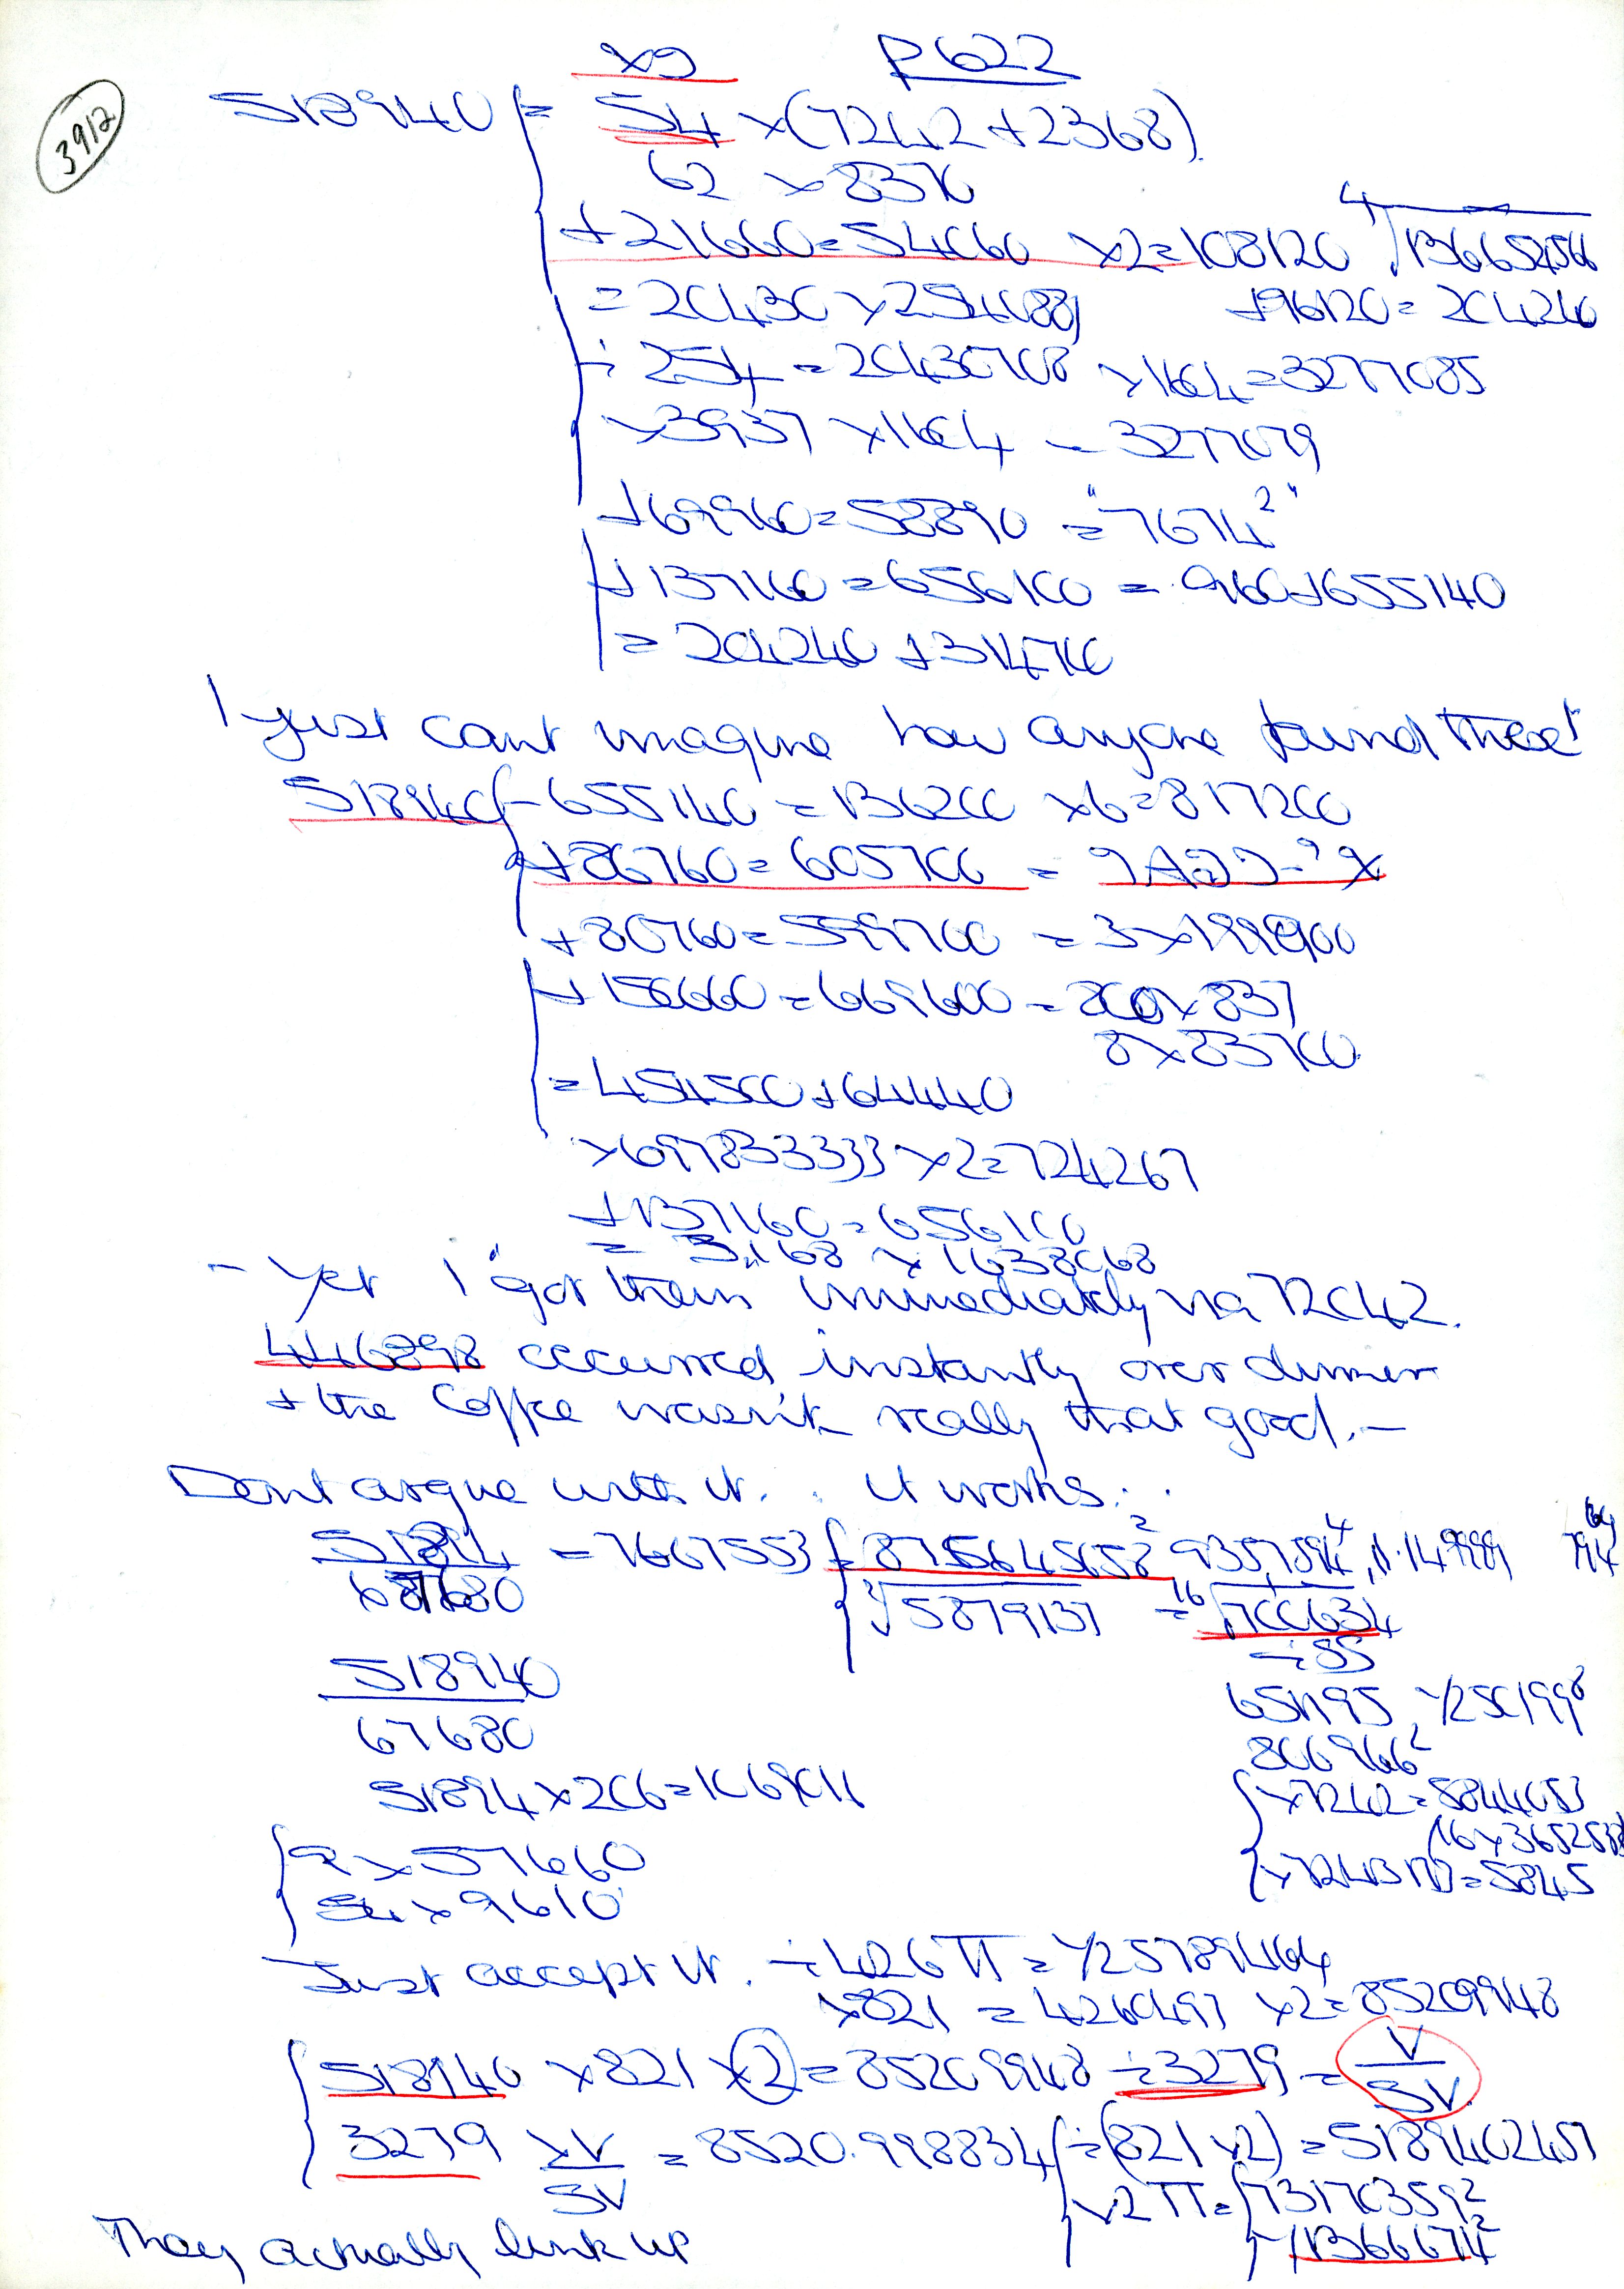 ×9 P622
3912
518940 = 54 × (7242 + 2368)
62 × 8370
+ 21660 = 54060 ×2 = 108120
+ 96120 = 204240
= 20430 × 254
÷ 254 = 20430708 × 1604 = 3277085
× 3937 × 1604 = 3277079
+ 69960 = 58890 = "7674²"
+ 137160 = 656100 = 960 + 655140
= 204240 + 314700
I just cant imagine how anyone found these!
518940 - 655140 = 136200 × 6 = 817200
+ 86760 = 605700 =
+ 80760 = 599700 = 3 × 199900
+ 150660 = 669600 = 800 × 837
8 × 83700
= 454500 + 64440
× 697833333 × 2 = 724267
+ 137160 = 656100
= 3.168 × 1638068
- Yet I "got" them immediately via 72042.
446898 occurred instantly over dinner
+ the coffee wasn't really that good. -
Dont argue with it.. it works...
51894 = 7667553 = 875645658² 9357594⁴, 1.149989
67680 ³√5879137 = ¹⁶√700634
÷ 55
518940
67680
651195, 1/250199⁸
800966²
51894 × 206 = 1069011
× 7242 = 5844053
9 × 57660
54 × 9610
Just accept it. ÷ 426π = 1/257891464
× 821 = 4260497 × 2 = 85209948
518940 × 821 × 2 = 85209948 ÷ 3279 = V/SV
3279 × V/SV = 8520.998834 ÷ (821 × 2) = 5189402457
× 2π = 73170359²
1/1366674²
They actually link up